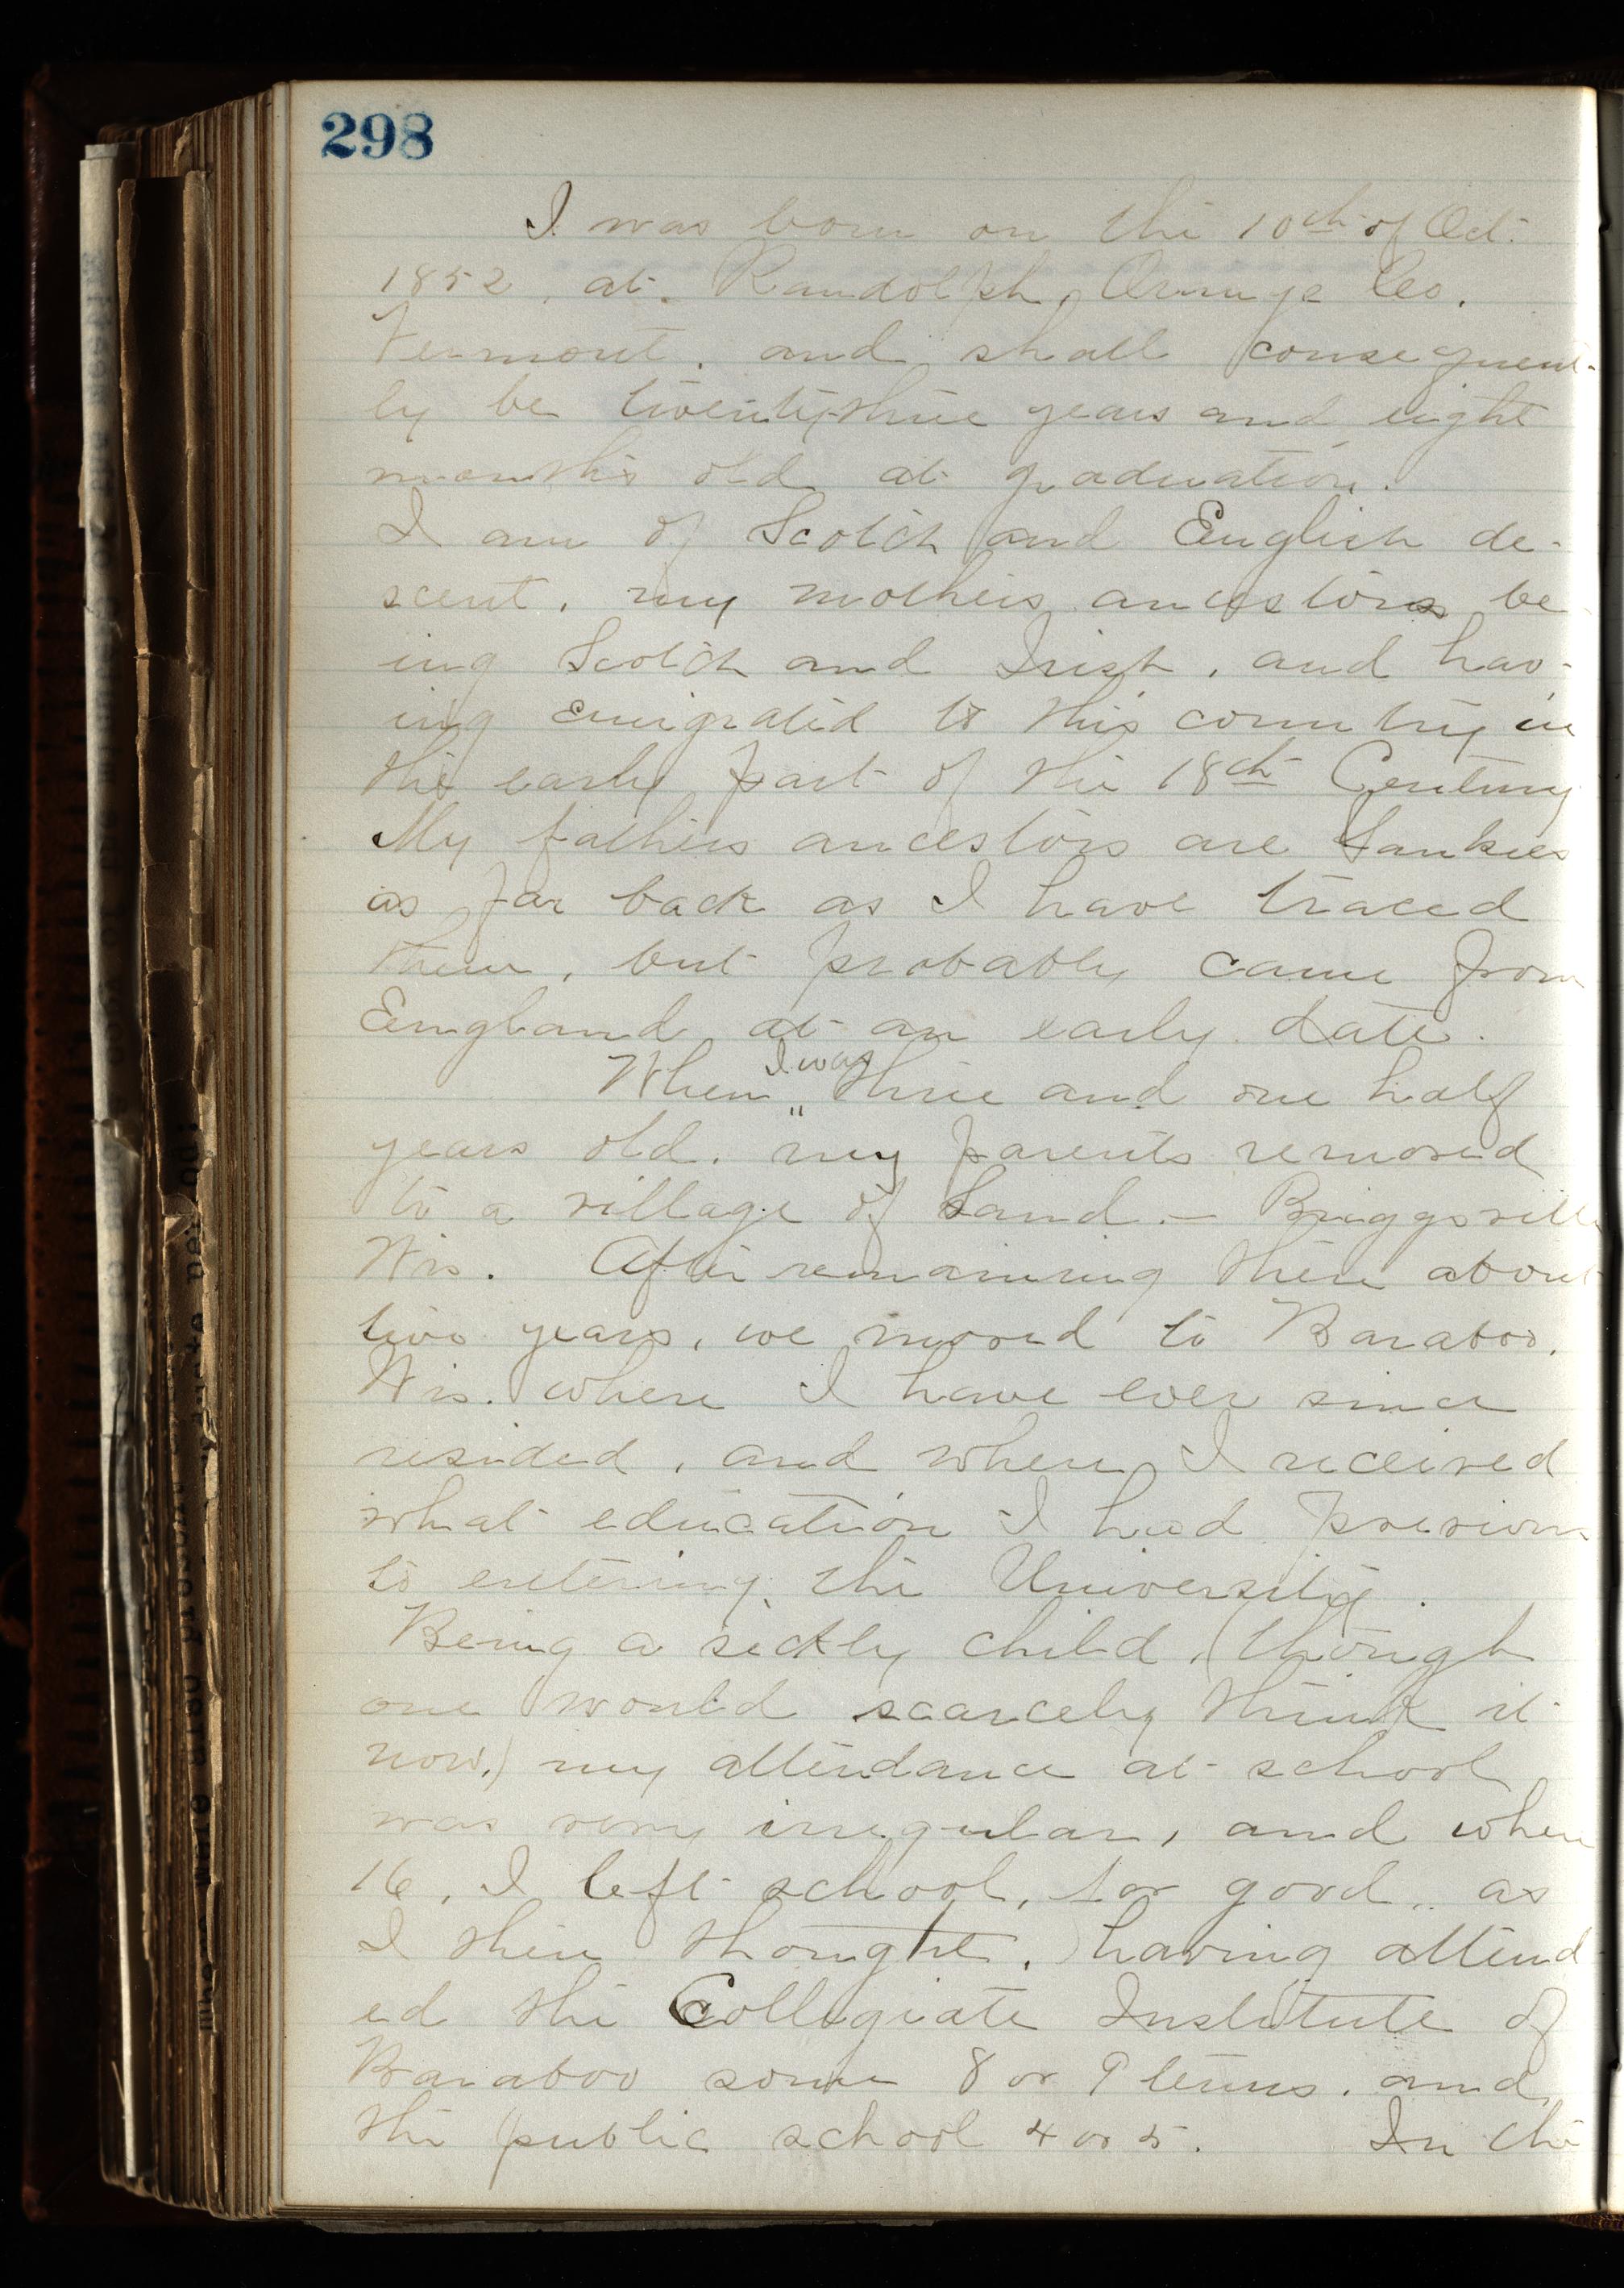 298
I was born on the 10th of Oct.
1852, at Randolph, Orange Co.
Vermont, and shall consequent-
ly be twenty-three years and eight
months old at graduation.
I am of Scotch and English de-
scent, my mothers ancestors be-
ing Scotch and Irish, and hav-
ing emigrated to this country in
the early part of the 18th Century
My fathers ancestors are Yankees
as far back as I have traced
them, but probably came from
England at an early date.
When I was three and one half
years old, my parents removed
to a village of Sand — Briggsville
Wis. After remaining there about
two years, we moved to Baraboo,
Wis. where I have ever since
resided, and where I received
what education I had previous
to entering the University.
Being a sickly child, (though
one would scarcely think it
now,) my attendance at school
was very irregular, and when
16, I left school, for good, as
I then thought, having attend-
ed the Collegiate Institute of
Baraboo some 8 or 9 terms, and
the public school 4 or 5. In the